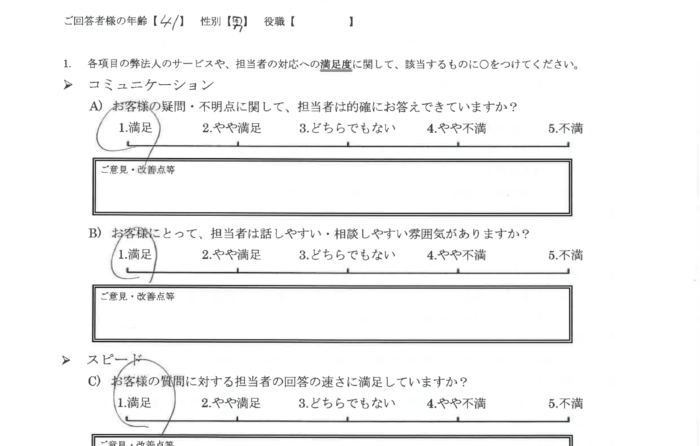 ご回答者様の年齢【41】 性別【男】 役職【 】
1. 各項目の弊法人のサービスや、担当者の対応への満足度に関して、該当するものに○をつけてください。
➤ コミュニケーション
A) お客様の疑問・不明点に関して、担当者は的確にお答えできていますか？
1.満足 2.やや満足 3.どちらでもない 4.やや不満 5.不満
ご意見・改善点等
B) お客様にとって、担当者は話しやすい・相談しやすい雰囲気がありますか？
1.満足 2.やや満足 3.どちらでもない 4.やや不満 5.不満
ご意見・改善点等
➤ スピード
C) お客様の質問に対する担当者の回答の速さに満足していますか？
1.満足 2.やや満足 3.どちらでもない 4.やや不満 5.不満
ご意見・改善点等